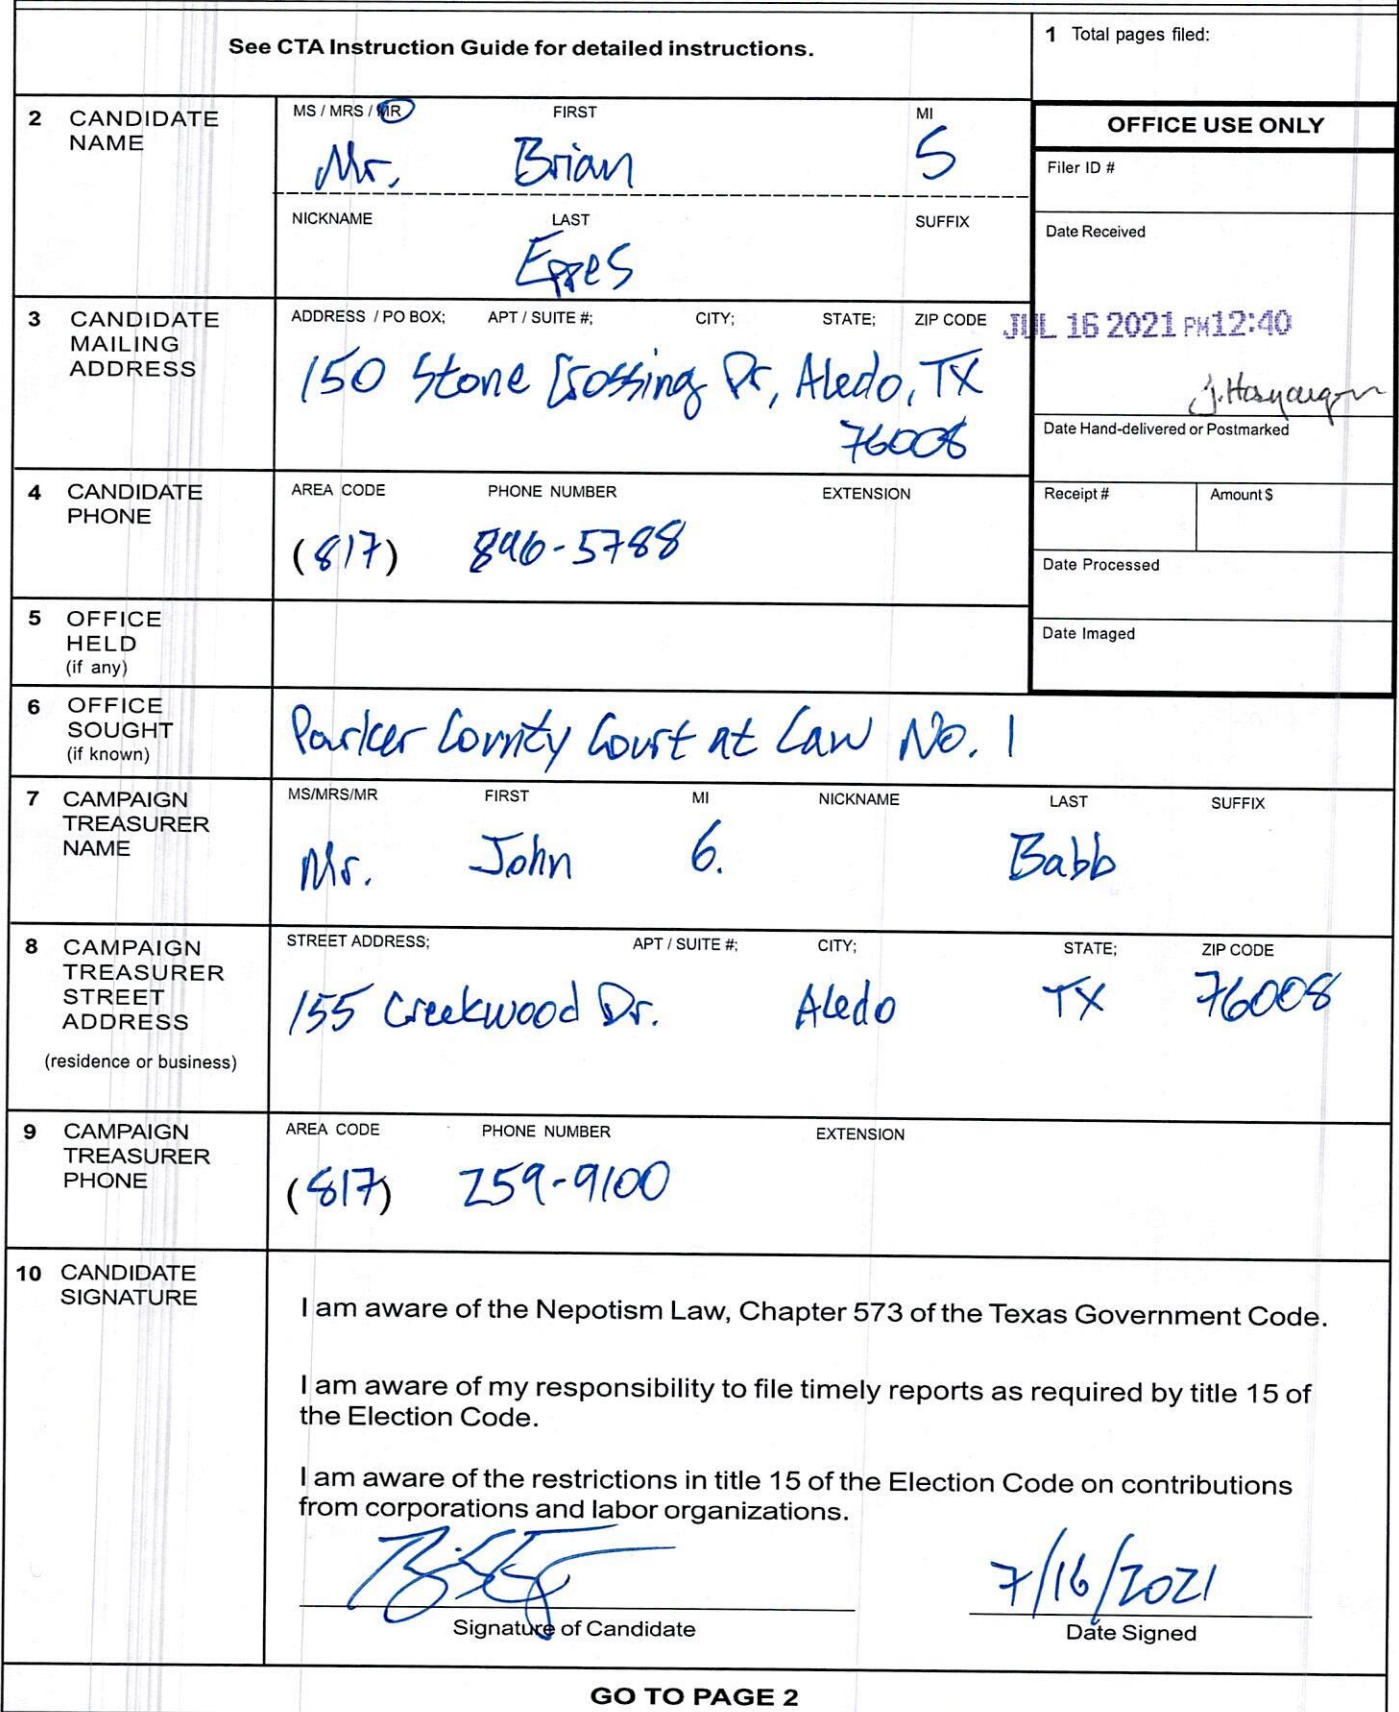 See CTA Instruction Guide for detailed instructions.
1 Total pages filed:
2 CANDIDATE NAME
MS / MRS / MR FIRST MI
Mr. Brian S
NICKNAME LAST SUFFIX
Eppes
OFFICE USE ONLY
Filer ID #
Date Received
JUL 16 2021 PM12:40
Date Hand-delivered or Postmarked
Receipt # Amount $
Date Processed
Date Imaged
3 CANDIDATE MAILING ADDRESS
ADDRESS / PO BOX; APT / SUITE #; CITY; STATE; ZIP CODE
150 Stone Crossing Dr, Aledo, TX
76008
4 CANDIDATE PHONE
AREA CODE PHONE NUMBER EXTENSION
(817) 846-5788
5 OFFICE HELD (if any)
6 OFFICE SOUGHT (if known)
Parker County Court at Law No. 1
7 CAMPAIGN TREASURER NAME
MS/MRS/MR FIRST MI NICKNAME LAST SUFFIX
Mr. John G. Babb
8 CAMPAIGN TREASURER STREET ADDRESS
(residence or business)
STREET ADDRESS; APT / SUITE #; CITY; STATE; ZIP CODE
155 Creekwood Dr. Aledo TX 76008
9 CAMPAIGN TREASURER PHONE
AREA CODE PHONE NUMBER EXTENSION
(817) 259-9100
10 CANDIDATE SIGNATURE
I am aware of the Nepotism Law, Chapter 573 of the Texas Government Code.
I am aware of my responsibility to file timely reports as required by title 15 of
the Election Code.
I am aware of the restrictions in title 15 of the Election Code on contributions
from corporations and labor organizations.
7/16/2021
Signature of Candidate Date Signed
GO TO PAGE 2